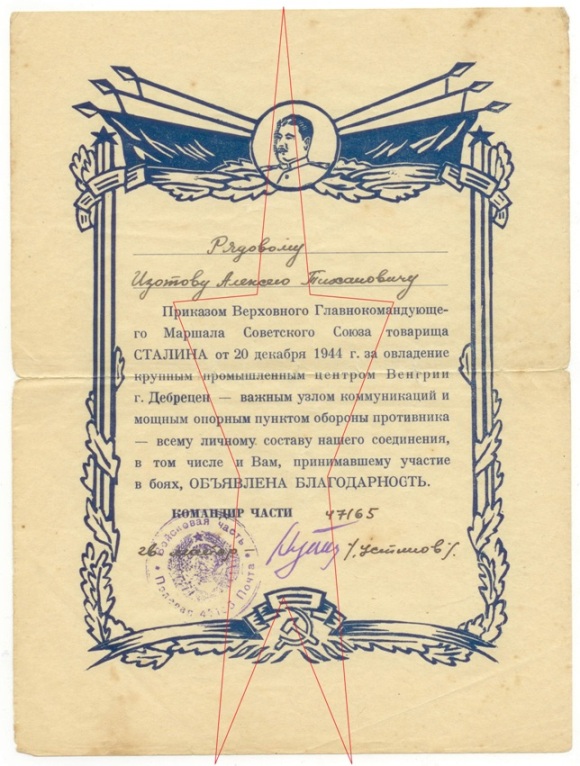 Рядовому
Изотову Алексею Тихановичу
Приказом Верховного Главнокомандующе-
го Маршала Советского Союза товарища
СТАЛИНА от 20 декабря 1944 г. за овладение
крупным промышленным центром Венгрии
г. Дебрецен — важным узлом коммуникаций и
мощным опорным пунктом обороны противника
— всему личному составу нашего соединения,
в том числе и Вам, принимавшему участие
в боях, ОБЪЯВЛЕНА БЛАГОДАРНОСТЬ.
КОМАНДИР ЧАСТИ 47165
Войсковая часть
Полевая Почта
/Устинов/.